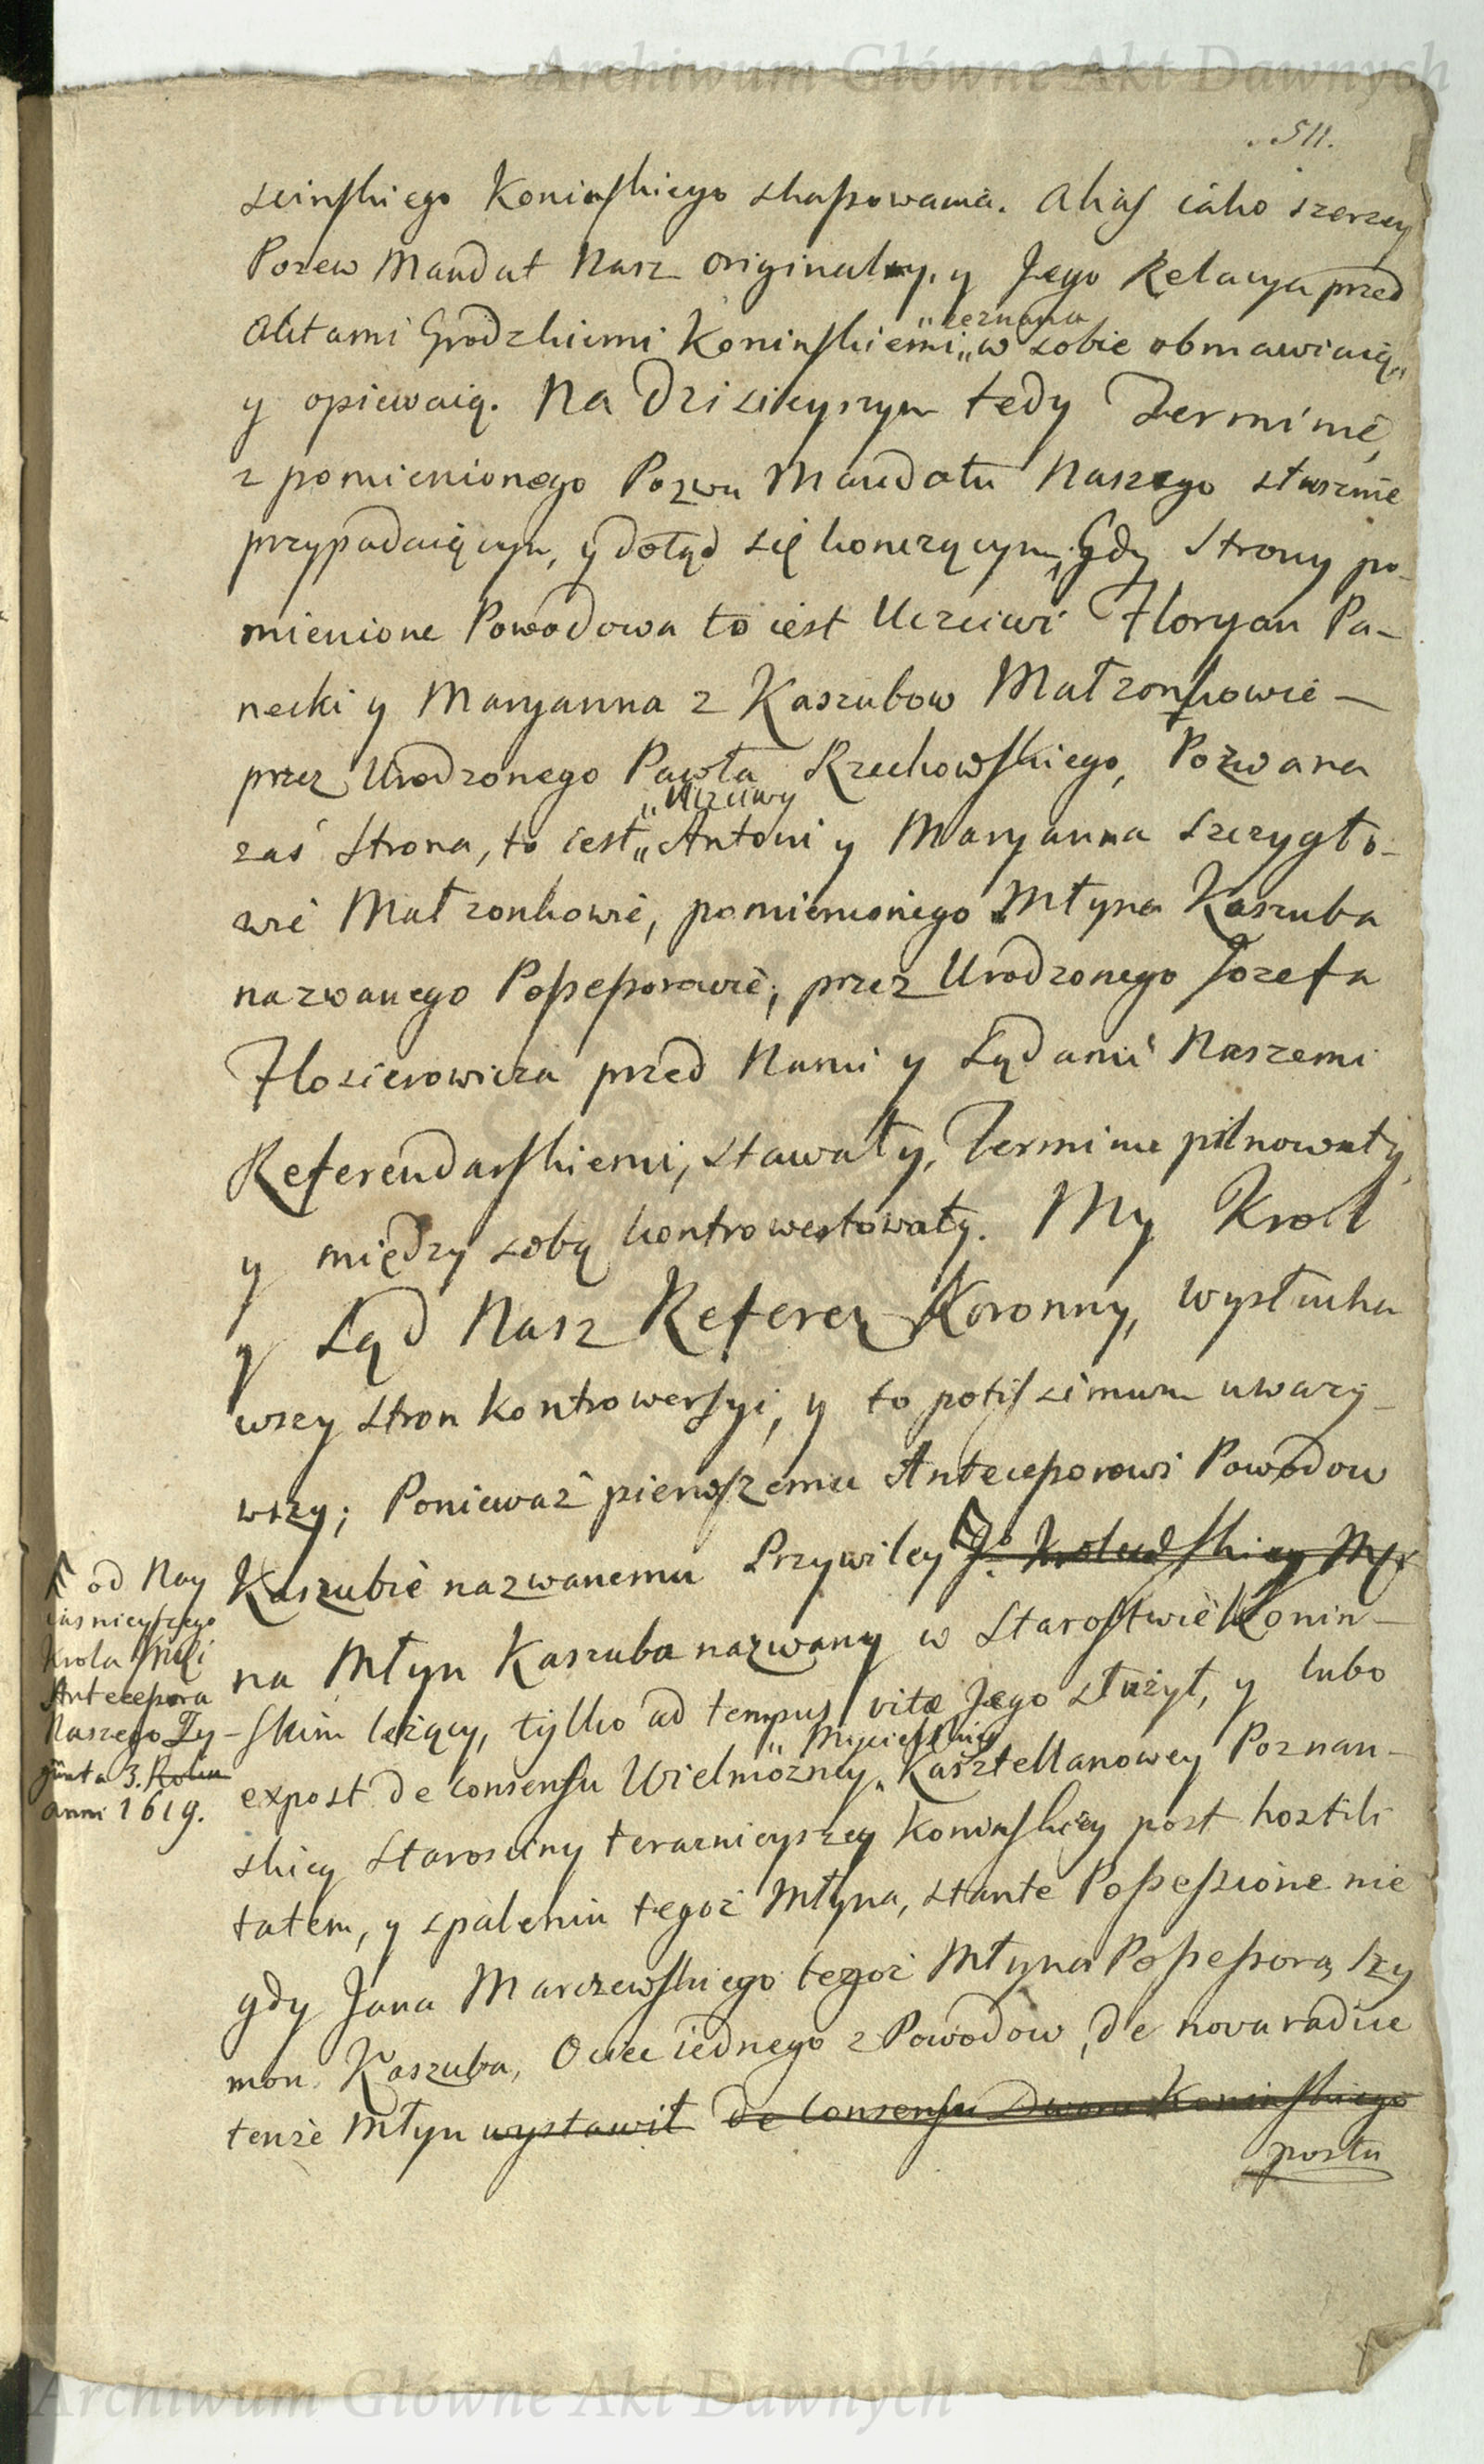 Archiwum Główne Akt Dawnych
511.
scinskiego Koninskiego skassowania. Alias iako szerzey
Pozew Mandat Nasz originalny, y Jego Relacya przed
Aktami Grodzkiemi Koninskiemi „zeznana„ w sobie obmawiaią,
y opiewaią. Na Dzisieyszym tedy Terminie,
z pomienionego Pozwu Mandatu Naszego słusznie
przypadaiącym, y dotąd się konczącym, Gdy Strony po-
mienione Powodowa to iest Uczciwi Floryan Pa-
necki y Maryanna z Kaszubow Małzonkowie –
przez Urodzonego Pawła Rzechowskiego, Pozwana
zaś Strona, to iest „Uczciwy„ Antoni y Maryanna Szczygło-
wie Małzonkowie, pomienionego Młyna Kaszuba
nazwanego Possessorowie, przez Urodzonego Jozefa
Flosierowicza przed Nami y Sądami Naszemi
Referendarskiemi, stawały, Terminu pilnowały,
y między sobą kontrowertowały. My Krol
y Sąd Nasz Referen Koronny, wysłucha
wszy Stron Kontrowersyi, y to potissimum uwazy-
wszy; Ponieważ pierwszemu Antecessorowi Powodow
Kaszubie nazwanemu Przywiley J. Krolewskiey Mci
na Młyn Kaszuba nazwany w Starostwie Konin-
skim leżący, tylko ad tempus vitæ Jego służył, y lubo
expost de consensu Wielmożney „Mycielskiey„ Kasztellanowey Poznan-
skiey Starosciny terazniejszey Koninskiey post hostili
tatem, y spaleniu tegoż Młyna, stante Possessione nie
gdy Jana Marczewskiego tegoż Młyna Possessora, Szy
mon Kaszuba, Ociec iednego z Powodow, de nova radice
tenże Młyn wystawił de consensu Dworu Koninskiego
postu
od Nay
iasnieyszego
Krola Imci
Antecessora
Naszego Zy-
gmunta 3. Roku
anni 1619.
Archiwum Główne Akt Dawnych